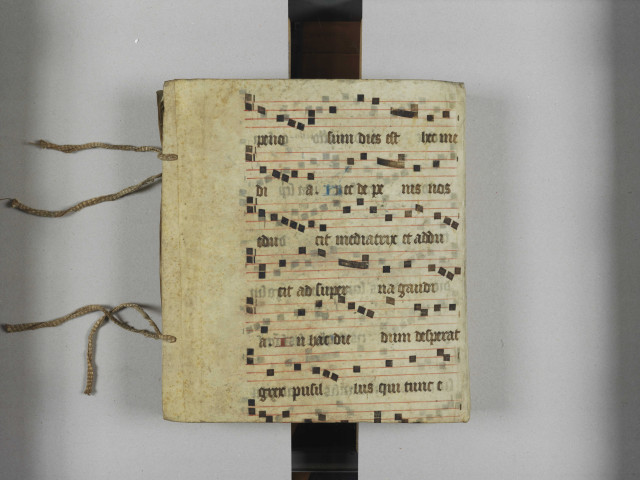 sum dies est hec me
di a nec de pe nis nos
educ cit mediatrix et addu
cit ad super na gaudi
hac die dum desperat
grex pusil lus qui tunc e